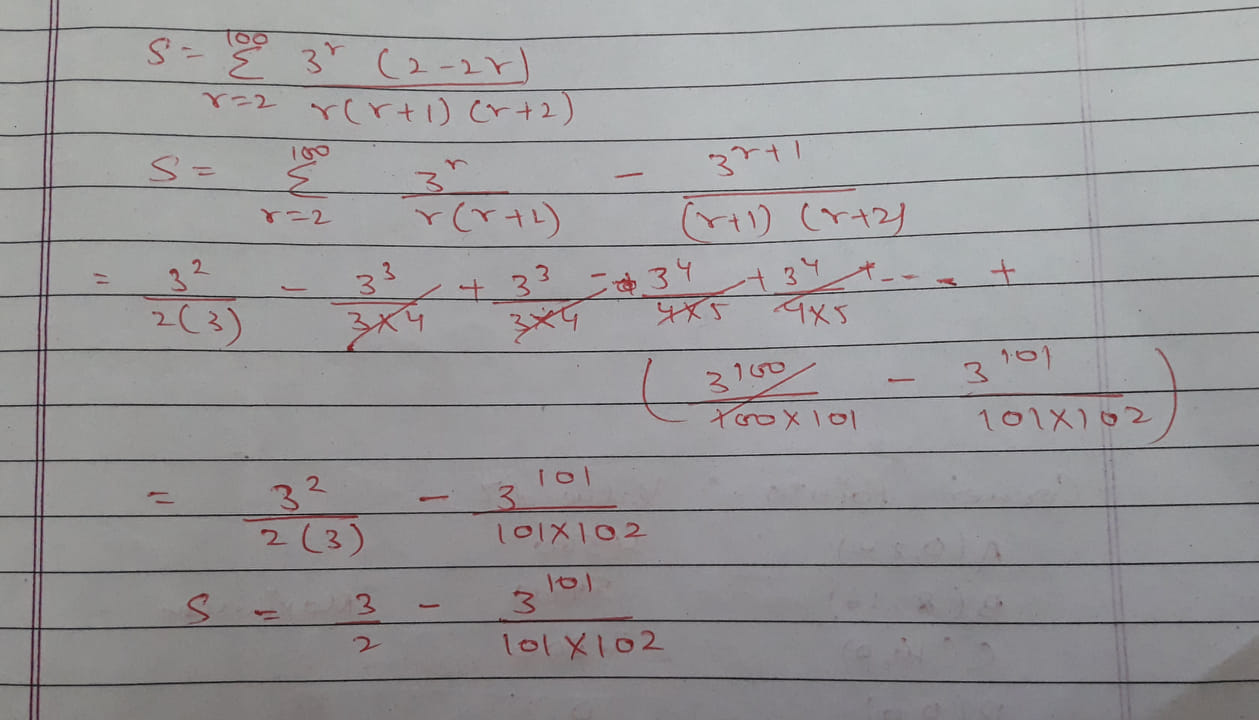 S = 100 Σ r=2 3^r (2-2r) / r(r+1)(r+2)
S = 100 Σ r=2 3^r / r(r+1) - 3^(r+1) / (r+1)(r+2)
= 3^2 / 2(3) - 3^3 / 3×4 + 3^3 / 3×4 - 3^4 / 4×5 + 3^4 / 4×5 + - - - +
( 3^100 / 100×101 - 3^101 / 101×102 )
= 3^2 / 2(3) - 3^101 / 101×102
S = 3 / 2 - 3^101 / 101×102